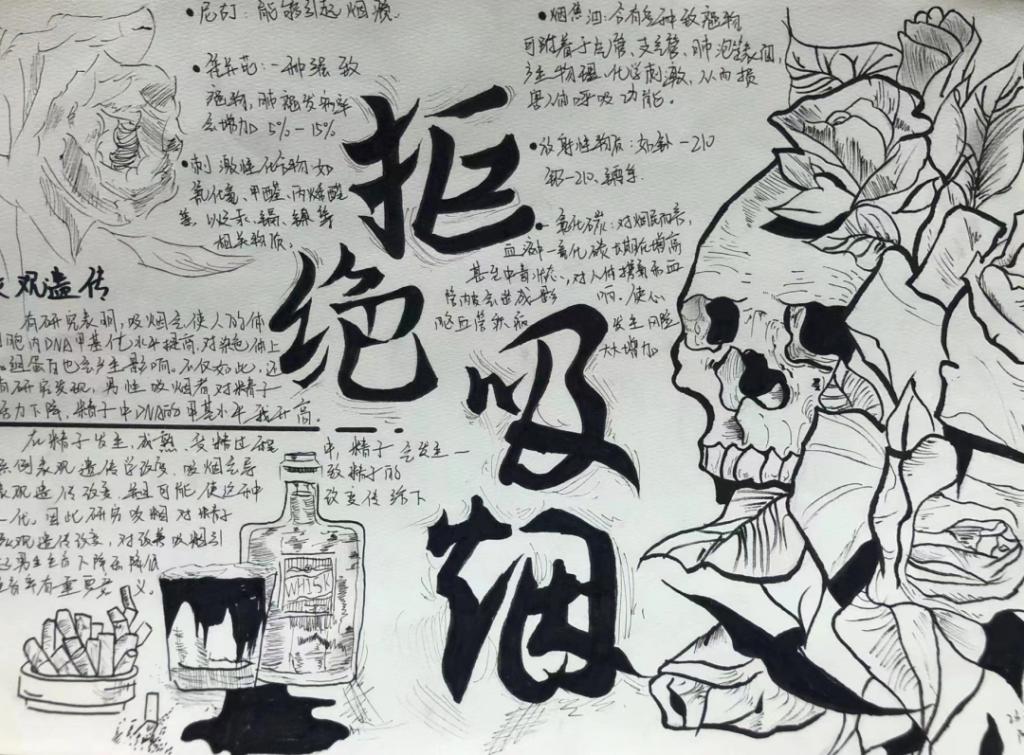 •尼古丁：能够引起烟瘾。
•苯并芘：一种强致
癌物，肺癌发病率
会增加 5%-15%
•刺激性化合物如
氰化氢、甲醛、丙烯醛
等，以汞、镉、镍等
相关物质。
•烟焦油：含有多种致癌物
可附着于气管、支气管、肺泡表面，
产生物理、化学刺激，从而损
害人体呼吸功能。
•放射性物质：如针-210
铅-210、镭等
•一氧化碳：对烟民而言，
血液中一氧化碳长期在增高
甚至中毒状态，对人体携氧和血
管内皮会造成影响，使心
脑血管疾病发生风险
大大增加
拒
绝
吸
烟
观遗传
有研究表明，吸烟会使人的体
胞内DNA甲基化水平提高，对染色体上
组蛋白也会产生影响。不仅如此，还
有研究发现，男性吸烟者对精子
活力下降，精子中DNA的甲基水平升高。
在精子发生、成熟、受精过程中，精子会发生一
系列表观遗传学改变，吸烟会导致精子的
表观遗传改变，并且可能使这种改变传给下
一代。因此研究吸烟对精子
表观遗传改变，对改善吸烟引
起男生生育下降和降低
有重要意义。
WHISK